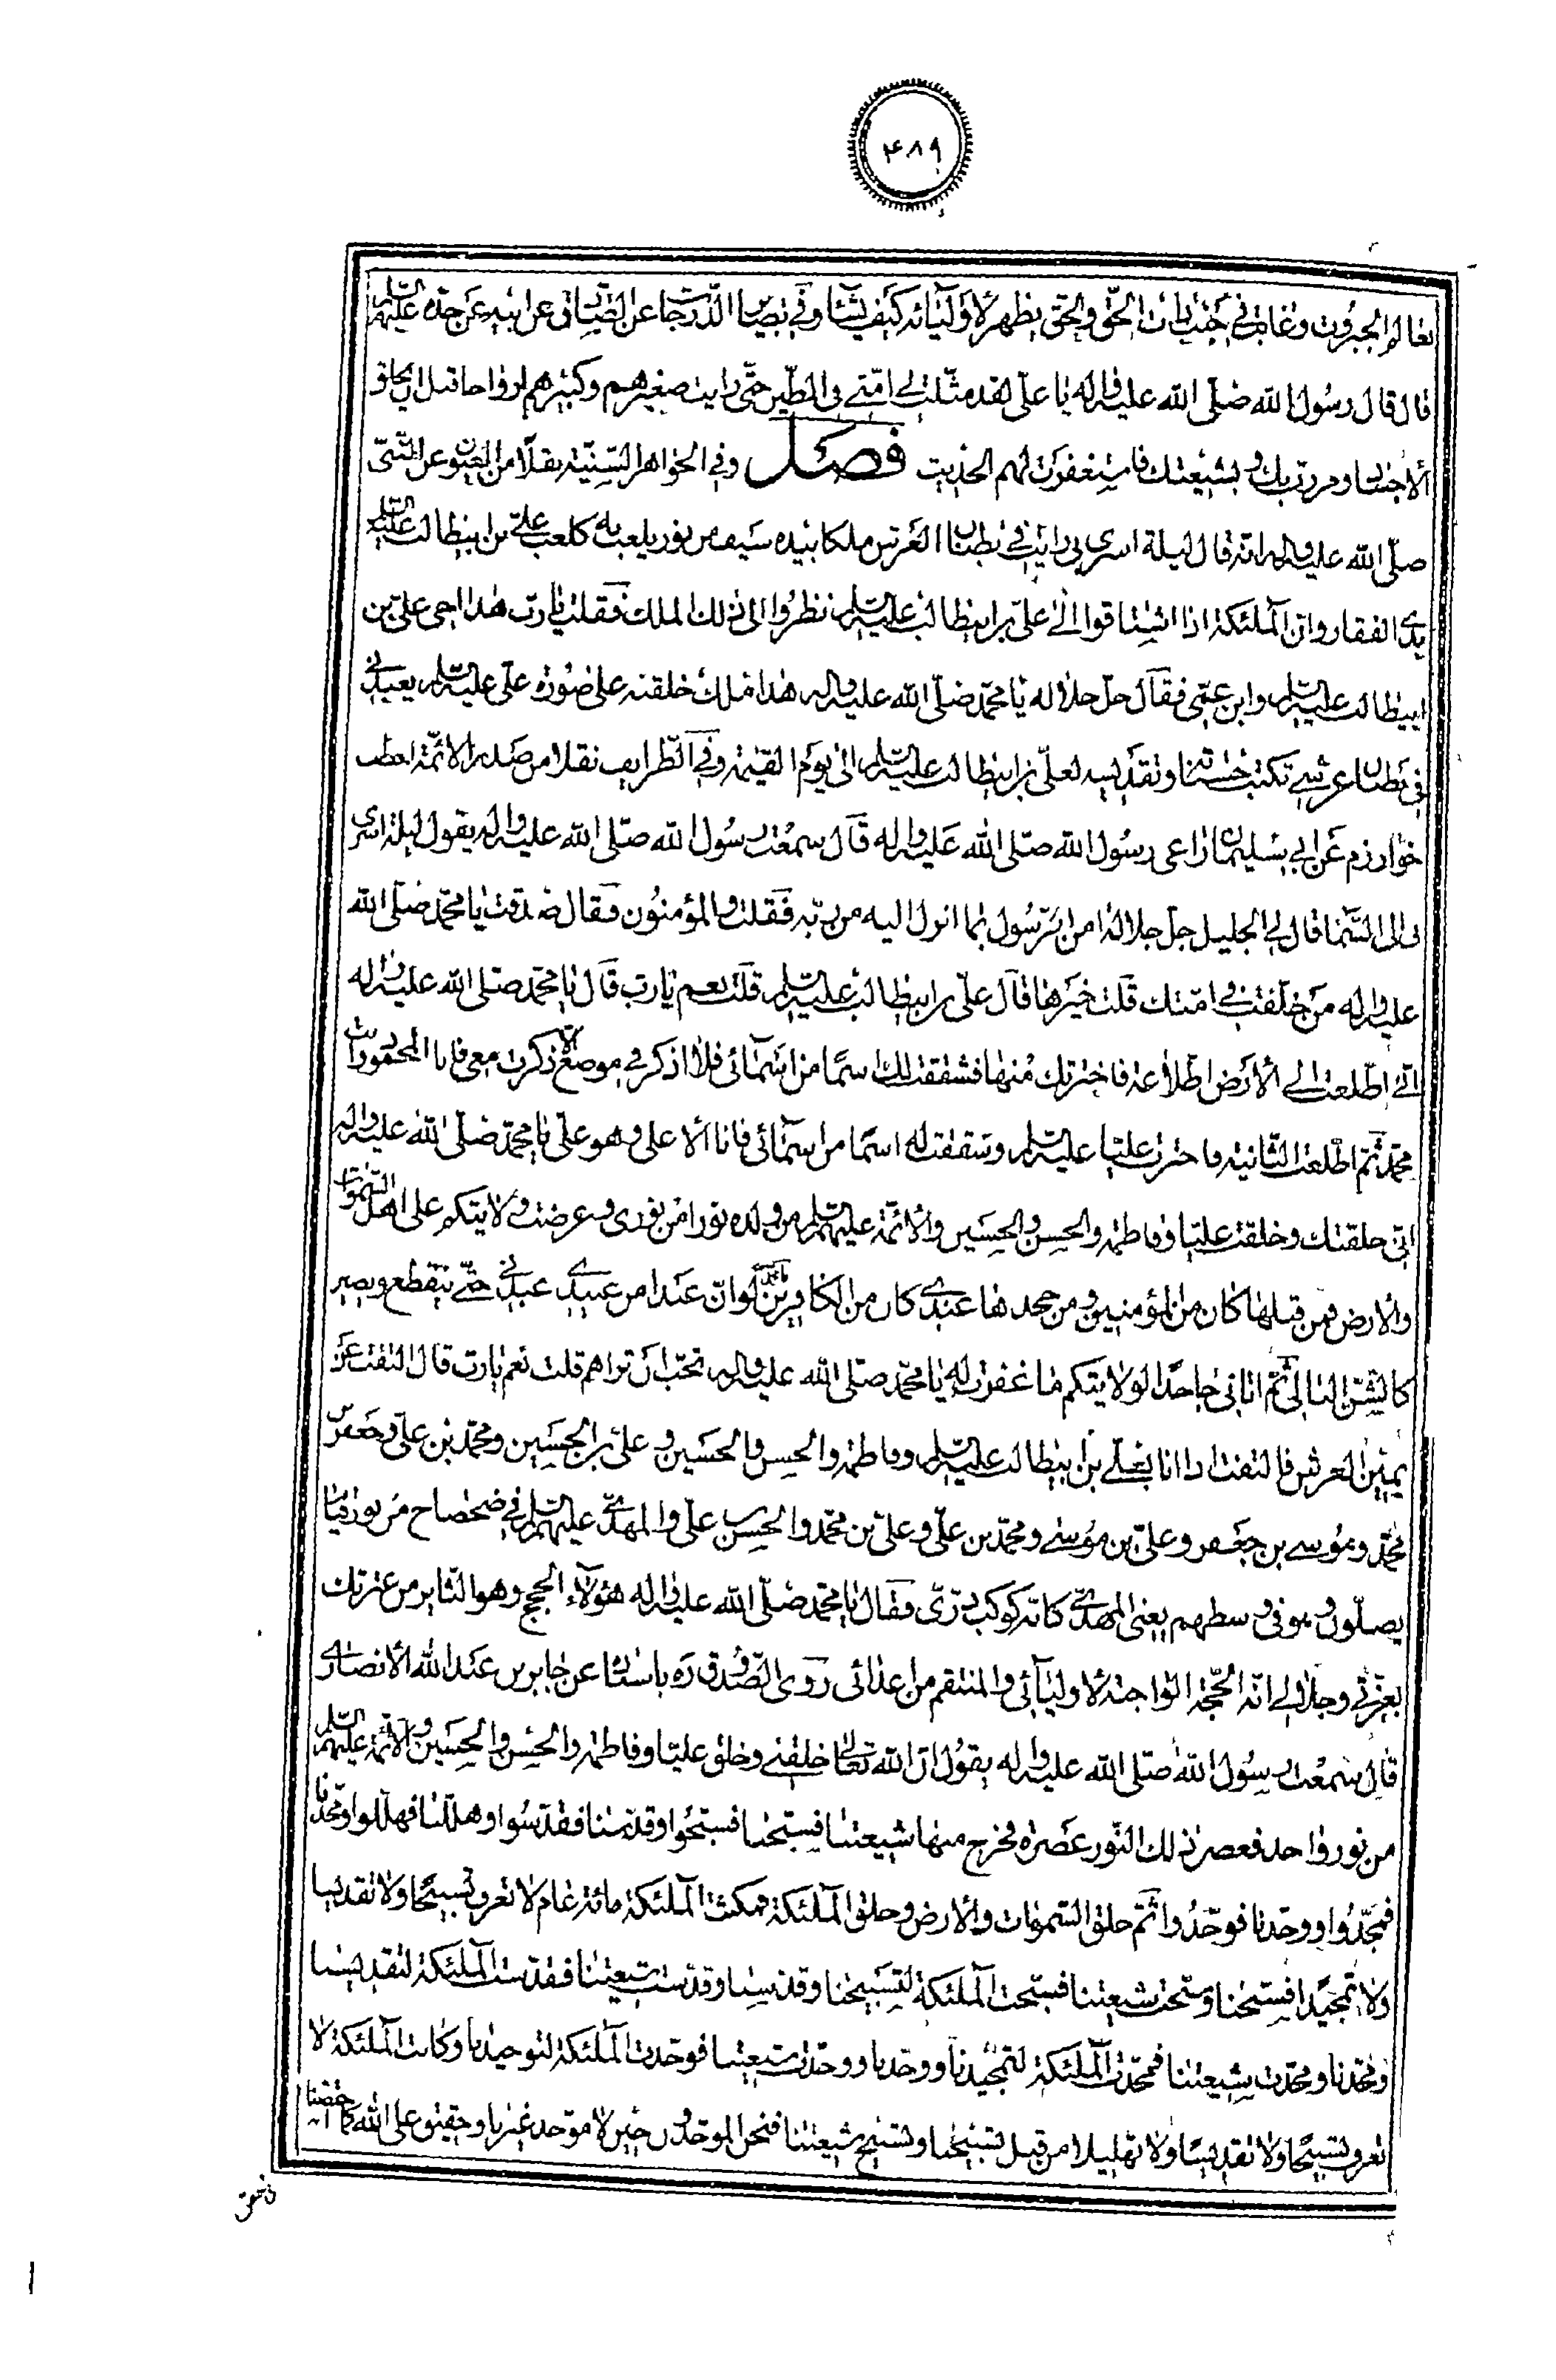 ۴۸۹
بعالم الجبروت وغابت في جنب ذات الحق والحق يظهر لاوليائه كيف يشاء وفي بصائر الدرجات عن الصادق عن ابيه عن جده عليهم السلام
قال قال رسول الله صلى الله عليه واله يا على لقد مثلت لي امتي في الطين حتى رايت صغيرهم وكبيرهم ارواحا قبل ان يخلق
الاجساد ومررت بك وبشيعتك فاستغفرت لهم الحديث فصل وفي الجواهر السنية نقلا من العيون عن النبي
صلى الله عليه واله انه قال ليلة اسرى بي رايت في بطنان العرش ملكا بيده سيف من نور يلعب به كلعب علي بن ابيطالب عليه السلام
بذى الفقار وان الملئكة اذا اشتاقوا الى على بن ابيطالب عليه السلام نظروا الى ذلك الملك فقلت يارب هذا اخي على بن
ابيطالب عليه السلام وابن عمى فقال جل جلاله يا محمد صلى الله عليه واله هذا ملك خلقته على صورة على عليه السلام يعبدني
في بطنان عرشي تكتب حسناته وتقديسه لعلى بن ابيطالب عليه السلام الى يوم القيمة وفي الطرايف نقلا من صدر الائمة اخطب
خوارزم عن ابي سليمان راعى رسول الله صلى الله عليه واله قال سمعت رسول الله صلى الله عليه واله يقول ليلة اسرى
بي الى السماء قال لي الجليل جل جلاله امن الرسول بما انزل اليه من ربه فقلت والمؤمنون فقال صدقت يا محمد صلى الله
عليه واله من خلفت في امتك قلت خيرها قال على بن ابيطالب عليه السلام قلت نعم يا رب قال يا محمد صلى الله عليه واله
اني اطلعت الى الارض اطلاعة فاخترتك منها فشققت لك اسما من اسمائى فلا اذكر في موضع الا ذكرت معى فانا المحمود وانت
محمد ثم اطلعت الثانية فاخترت عليا عليه السلام وشققت له اسما من اسمائى فانا الاعلى وهو على يا محمد صلى الله عليه واله
انى خلقتك وخلقت عليا وفاطمة والحسن والحسين والائمة عليهم السلام من ولده نورا من نورى وعرضت ولايتكم على اهل السموات
والارض فمن قبلها كان من المؤمنين ومن جحدها عندى كان من الكافرين يا محمد لو ان عبدا من عبيدي عبدني حتى ينقطع ويصير
كالشن البالى ثم اتانى جاحدا لولايتكم ما غفرت له يا محمد صلى الله عليه واله تحب ان تراهم قلت نعم يا رب قال التفت عن
يمين العرش فالتفت اذا انا بعلي بن ابيطالب عليه السلام وفاطمة والحسن والحسين وعلى بن الحسين ومحمد بن على وجعفر بن
محمد وموسى بن جعفر وعلى بن موسى ومحمد بن على وعلى بن محمد والحسن بن على والمهدى عليهم السلام في ضحضاح من نور قياما
يصلون وهو فى وسطهم يعنى المهدى كانه كوكب درى فقال يا محمد صلى الله عليه واله هؤلاء الحجج وهو الثاير من عترتك
بعزتي وجلالي انه الحجة الواجبة لاوليائى والمنتقم من اعدائى روى الصدوق ره باسناده عن جابر بن عبد الله الانصارى
قال سمعت رسول الله صلى الله عليه واله يقول ان الله تعالى خلقني وخلق عليا وفاطمة والحسن والحسين والائمة عليهم السلام
من نور واحد فعصر ذلك النور عصرة فخرج منها شيعتنا فسبحنا فسبحوا وقدسنا فقدسوا وهللنا فهللوا ومجدنا
فمجدوا ووحدنا فوحدوا ثم خلق السموات والارض وخلق الملئكة فمكثت الملئكة مائة عام لا تعرف تسبيحا ولا تقديسا
ولا تمجيدا فسبحنا وسبحت شيعتنا فسبحت الملئكة لتسبيحنا وقدسنا وقدست شيعتنا فقدست الملئكة لتقديسنا
ومجدنا ومجدت شيعتنا فمجدت الملئكة لتمجيدنا ووحدنا ووحدت شيعتنا فوحدت الملئكة لتوحيدنا وكانت الملئكة لا
تعرف تسبيحا ولا تقديسا ولا تهليلا من قبل تسبيحنا وتسبيح شيعتنا فنحن الموحدون حين لا موحد غيرنا وحقيق على الله كما اختصنا